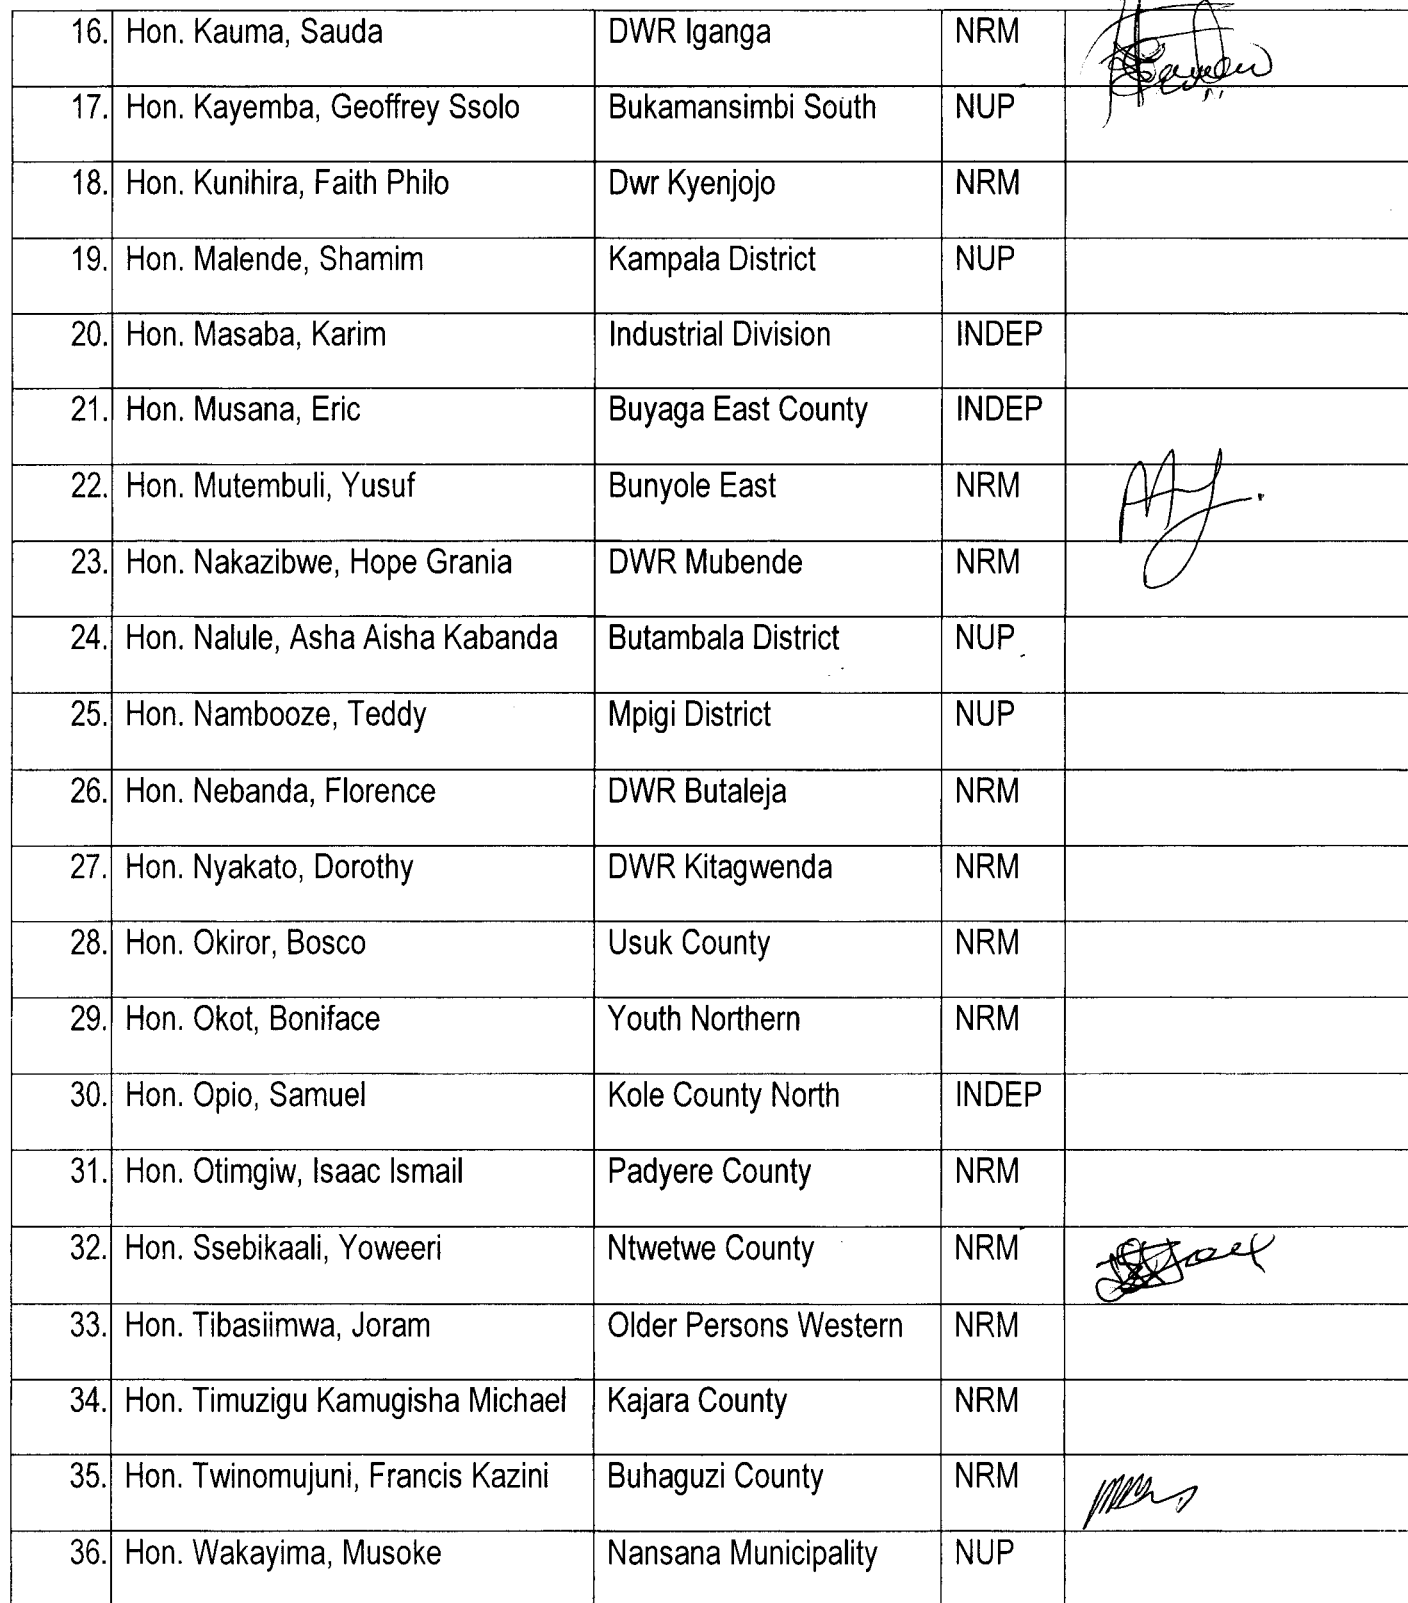 16. Hon. Kauma, Sauda DWR Iganga NRM
17. Hon. Kayemba, Geoffrey Ssolo Bukamansimbi South NUP
18. Hon. Kunihira, Faith Philo Dwr Kyenjojo NRM
19. Hon. Malende, Shamim Kampala District NUP
20. Hon. Masaba, Karim Industrial Division INDEP
21. Hon. Musana, Eric Buyaga East County INDEP
22. Hon. Mutembuli, Yusuf Bunyole East NRM
23. Hon. Nakazibwe, Hope Grania DWR Mubende NRM
24. Hon. Nalule, Asha Aisha Kabanda Butambala District NUP
25. Hon. Nambooze, Teddy Mpigi District NUP
26. Hon. Nebanda, Florence DWR Butaleja NRM
27. Hon. Nyakato, Dorothy DWR Kitagwenda NRM
28. Hon. Okiror, Bosco Usuk County NRM
29. Hon. Okot, Boniface Youth Northern NRM
30. Hon. Opio, Samuel Kole County North INDEP
31. Hon. Otimgiw, Isaac Ismail Padyere County NRM
32. Hon. Ssebikaali, Yoweeri Ntwetwe County NRM
33. Hon. Tibasiimwa, Joram Older Persons Western NRM
34. Hon. Timuzigu Kamugisha Michael Kajara County NRM
35. Hon. Twinomujuni, Francis Kazini Buhaguzi County NRM
36. Hon. Wakayima, Musoke Nansana Municipality NUP